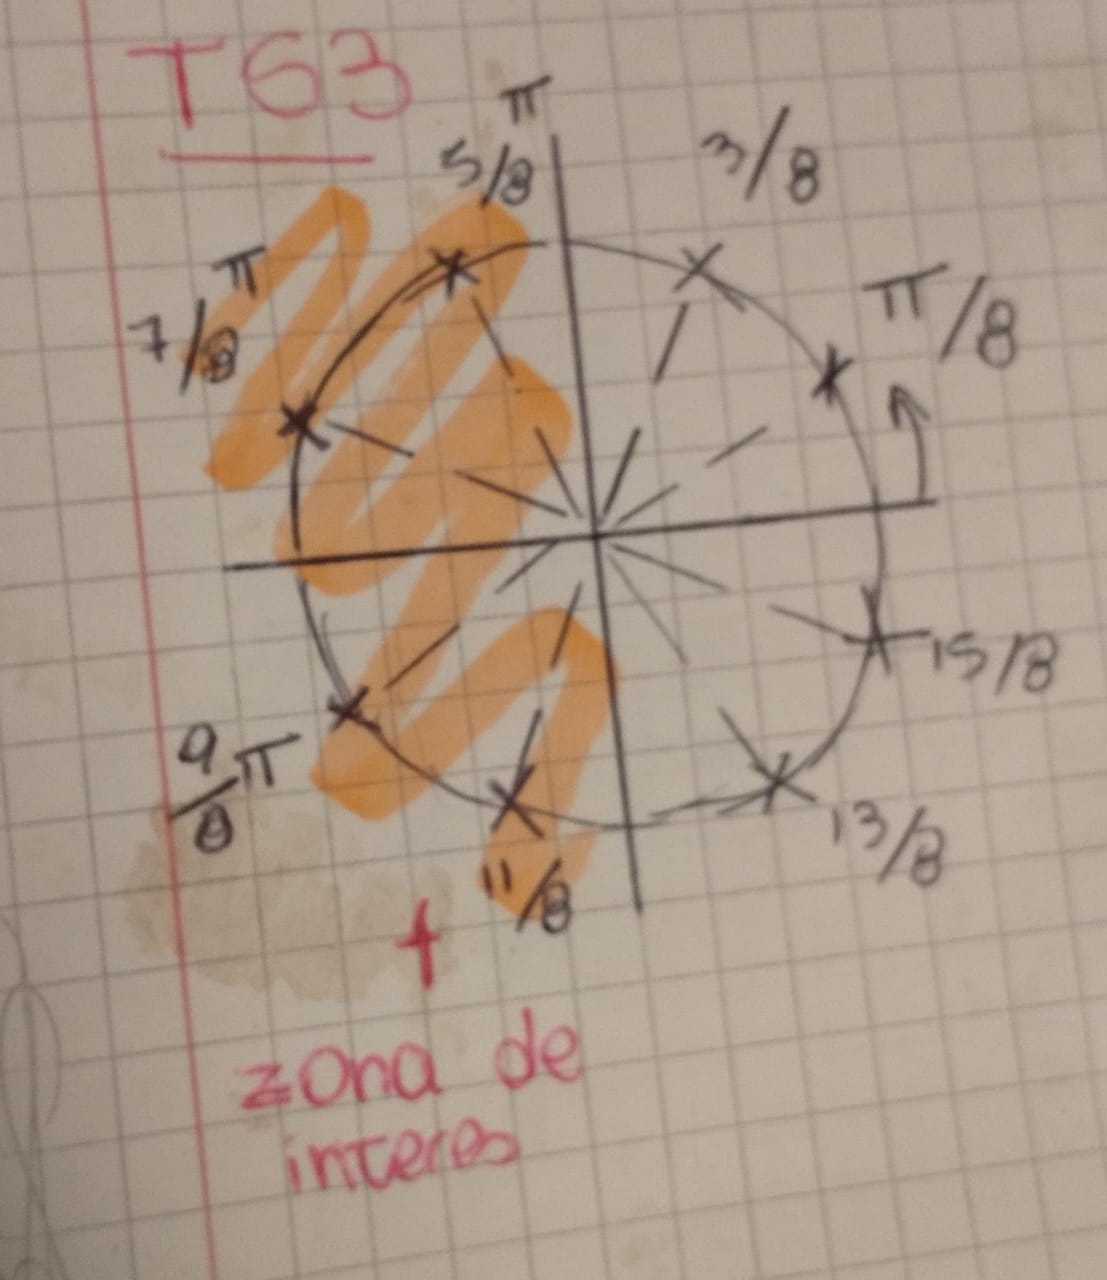 TG3
π
5/8
3/8
π
7/8
π/8
15/8
9/8 π
13/8
11/8
zona de
interes